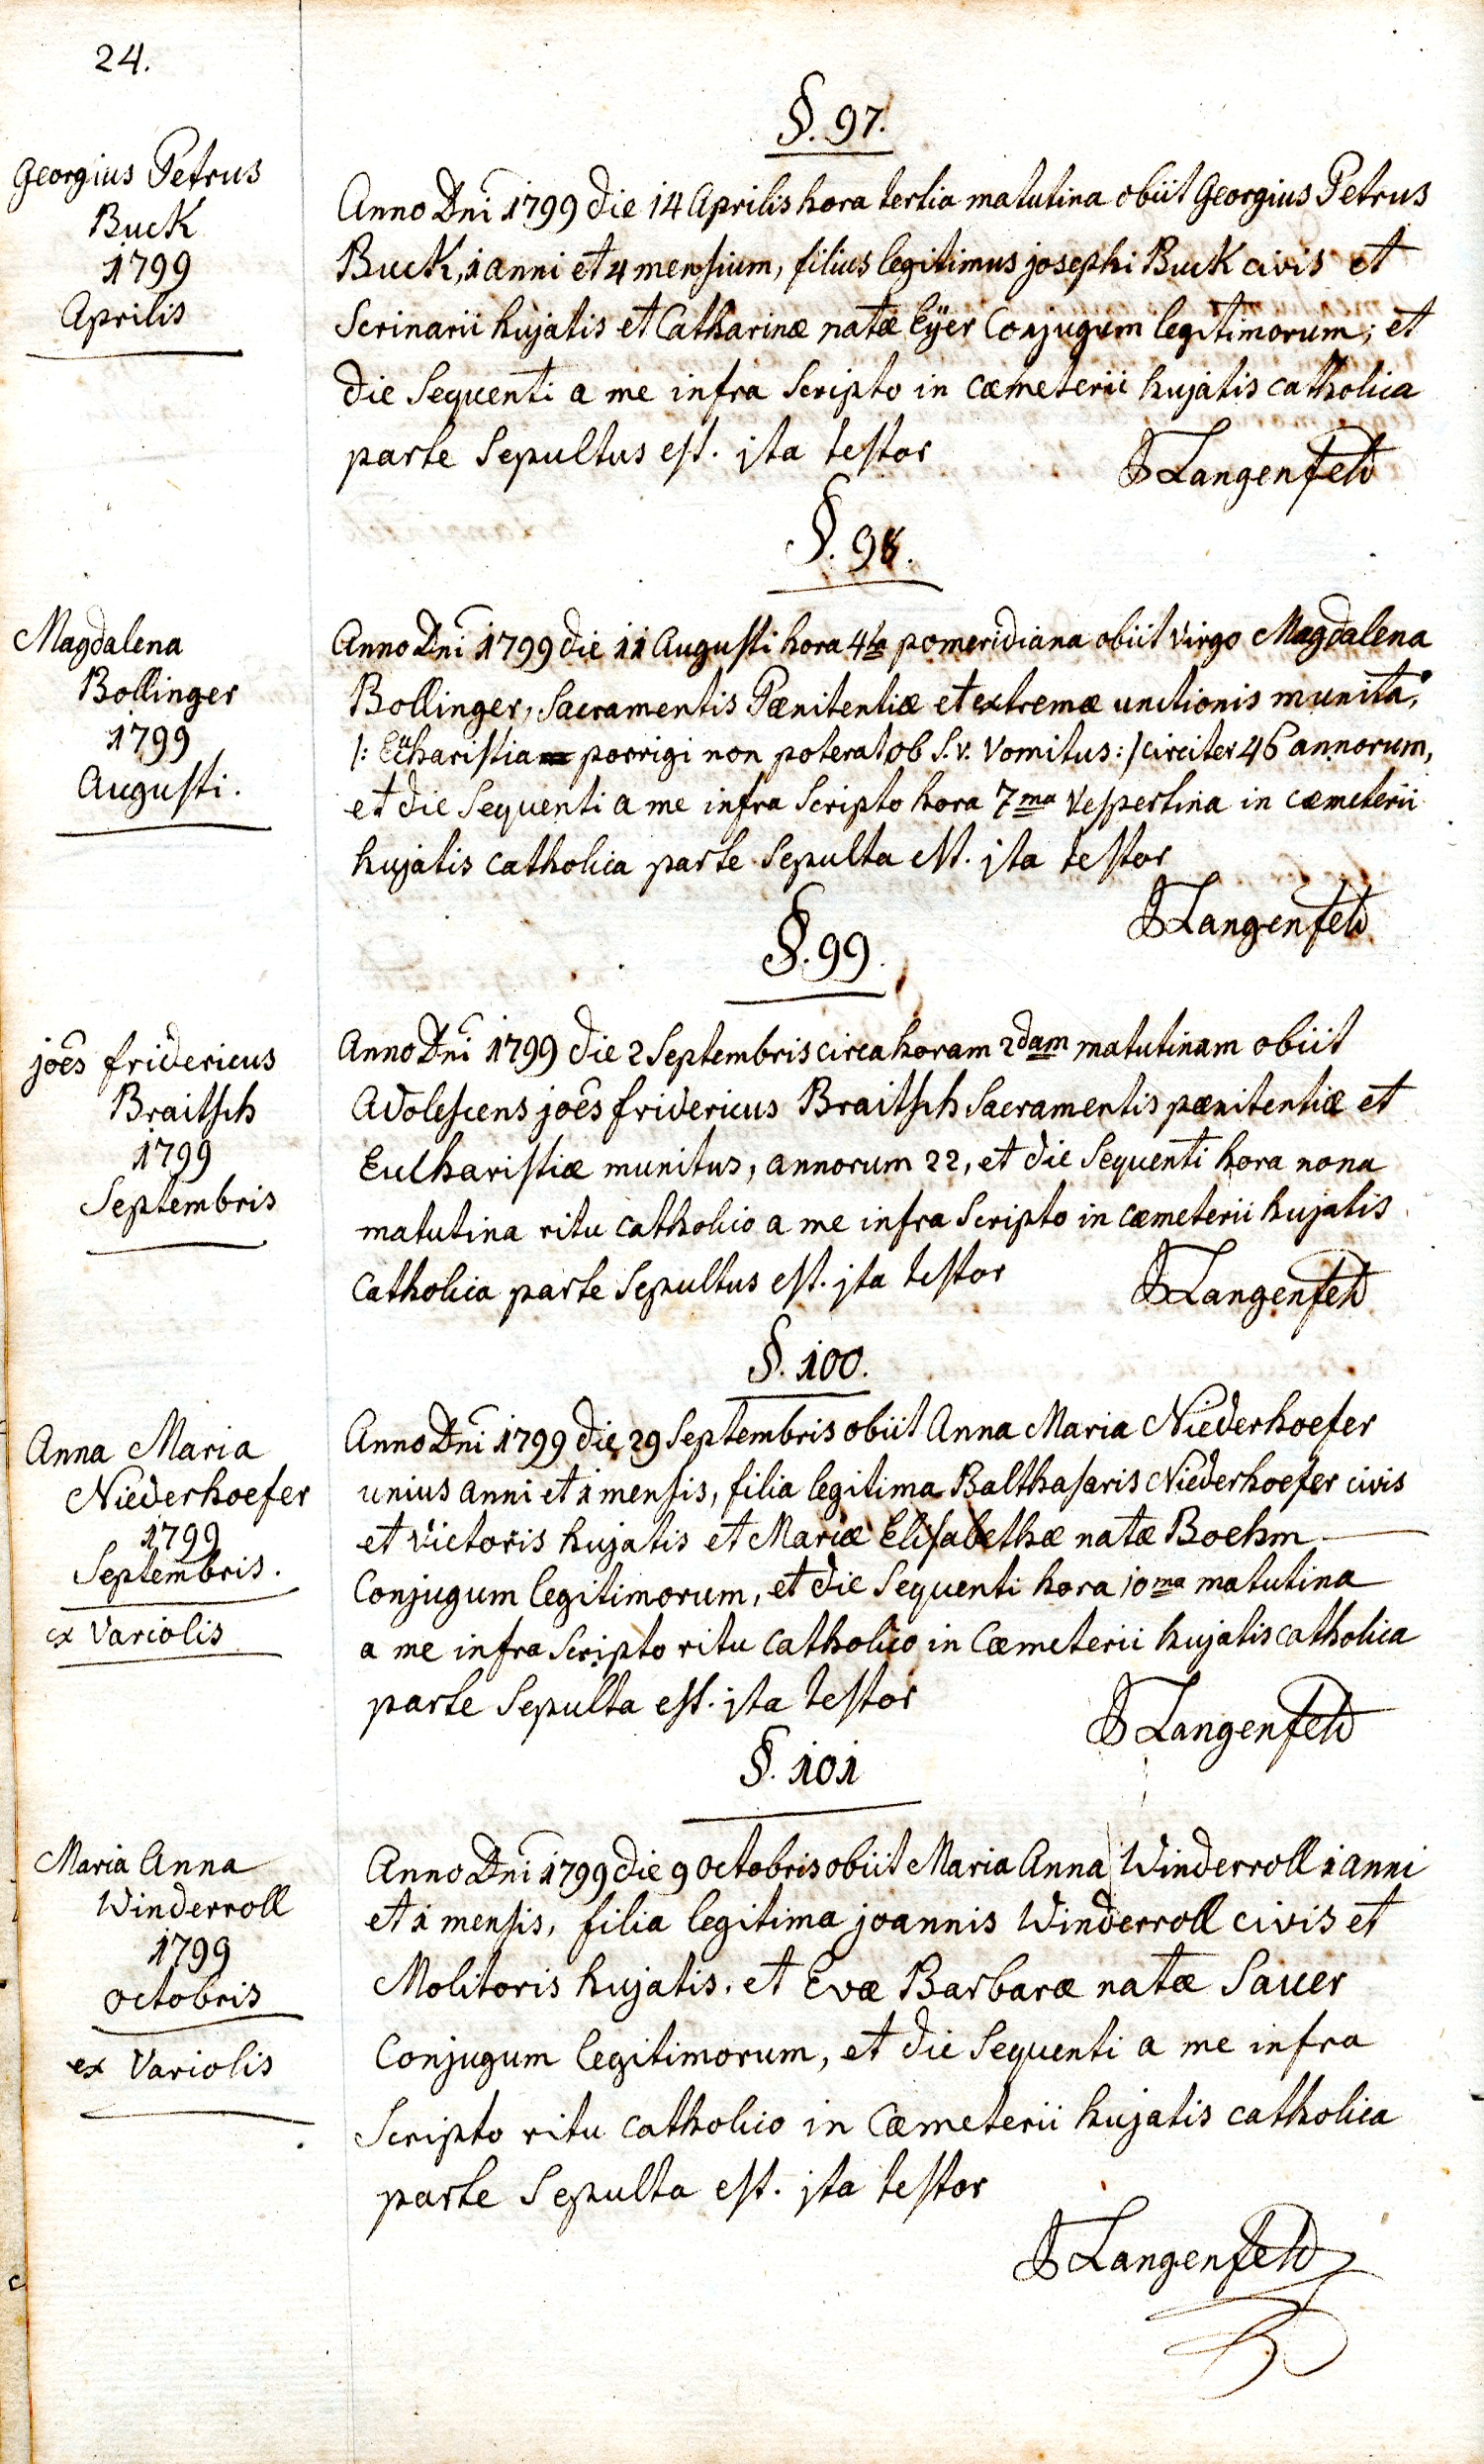 24.
§. 97.
Georgius Petrus
Buck
1799
Aprilis
Anno Dni 1799 die 14 Aprilis hora tertia matutina obiit Georgius Petrus
Buck, 1 anni et 4 mensium, filius legitimus josephi Buck civis et
Scrinarii hujatis et Catharinæ natæ Eÿer Conjugum legitimorum; et
die Sequenti a me infra Scripto in cæmeterii hujatis catholica
parte Sepultus est. jta testor
J Langenfeld
§. 98.
Magdalena
Bollinger
1799
Augusti.
Anno Dni 1799 die 11 Augusti hora 4ta pomeridiana obiit virgo Magdalena
Bollinger, Sacramentis Pænitentiæ et extremæ unctionis munita,
/: Eûharistia porrigi non poterat ob S.v. vomitus :/ circiter 46 annorum,
et die Sequenti a me infra Scripto hora 7ma vespertina in cæmeterii
hujatis catholica parte Sepulta est. jta testor
J Langenfeld
§. 99.
joês fridericus
Braitsch
1799
Septembris
Anno Dni 1799 die 2 Septembris circa horam 2dam matutinam obiit
Adolescens joês fridericus Braitsch Sacramentis pænitentiæ et
Eucharistiæ munitus, annorum 22, et die Sequenti hora nona
matutina ritu catholico a me infra Scripto in cæmeterii hujatis
catholica parte Sepultus est. jta testor
J Langenfeld
§. 100.
Anna Maria
Niederhoefer
1799
Septembris.
ex Variolis
Anno Dni 1799 die 29 Septembris obiit Anna Maria Niederhoefer
unius anni et 1 mensis, filia legitima Balthasaris Niederhoefer civis
et victoris hujatis et Mariæ Elisabethæ natæ Boehm
Conjugum legitimorum, et die Sequenti hora 10ma matutina
a me infra Scripto ritu catholico in Cæmeterii hujatis catholica
parte Sepulta est. jta testor
J Langenfeld
§. 101
Maria Anna
Winderroll
1799
octobris
ex Variolis
Anno Dni 1799 die 9 octobris obiit Maria Anna Winderroll 1 anni
et 1 mensis, filia legitima joannis Winderroll civis et
Molitoris hujatis, et Evæ Barbaræ natæ Sauer
Conjugum legitimorum, et die Sequenti a me infra
Scripto ritu catholico in Cæmeterii hujatis catholica
parte Sepulta est. jta testor
J Langenfeld